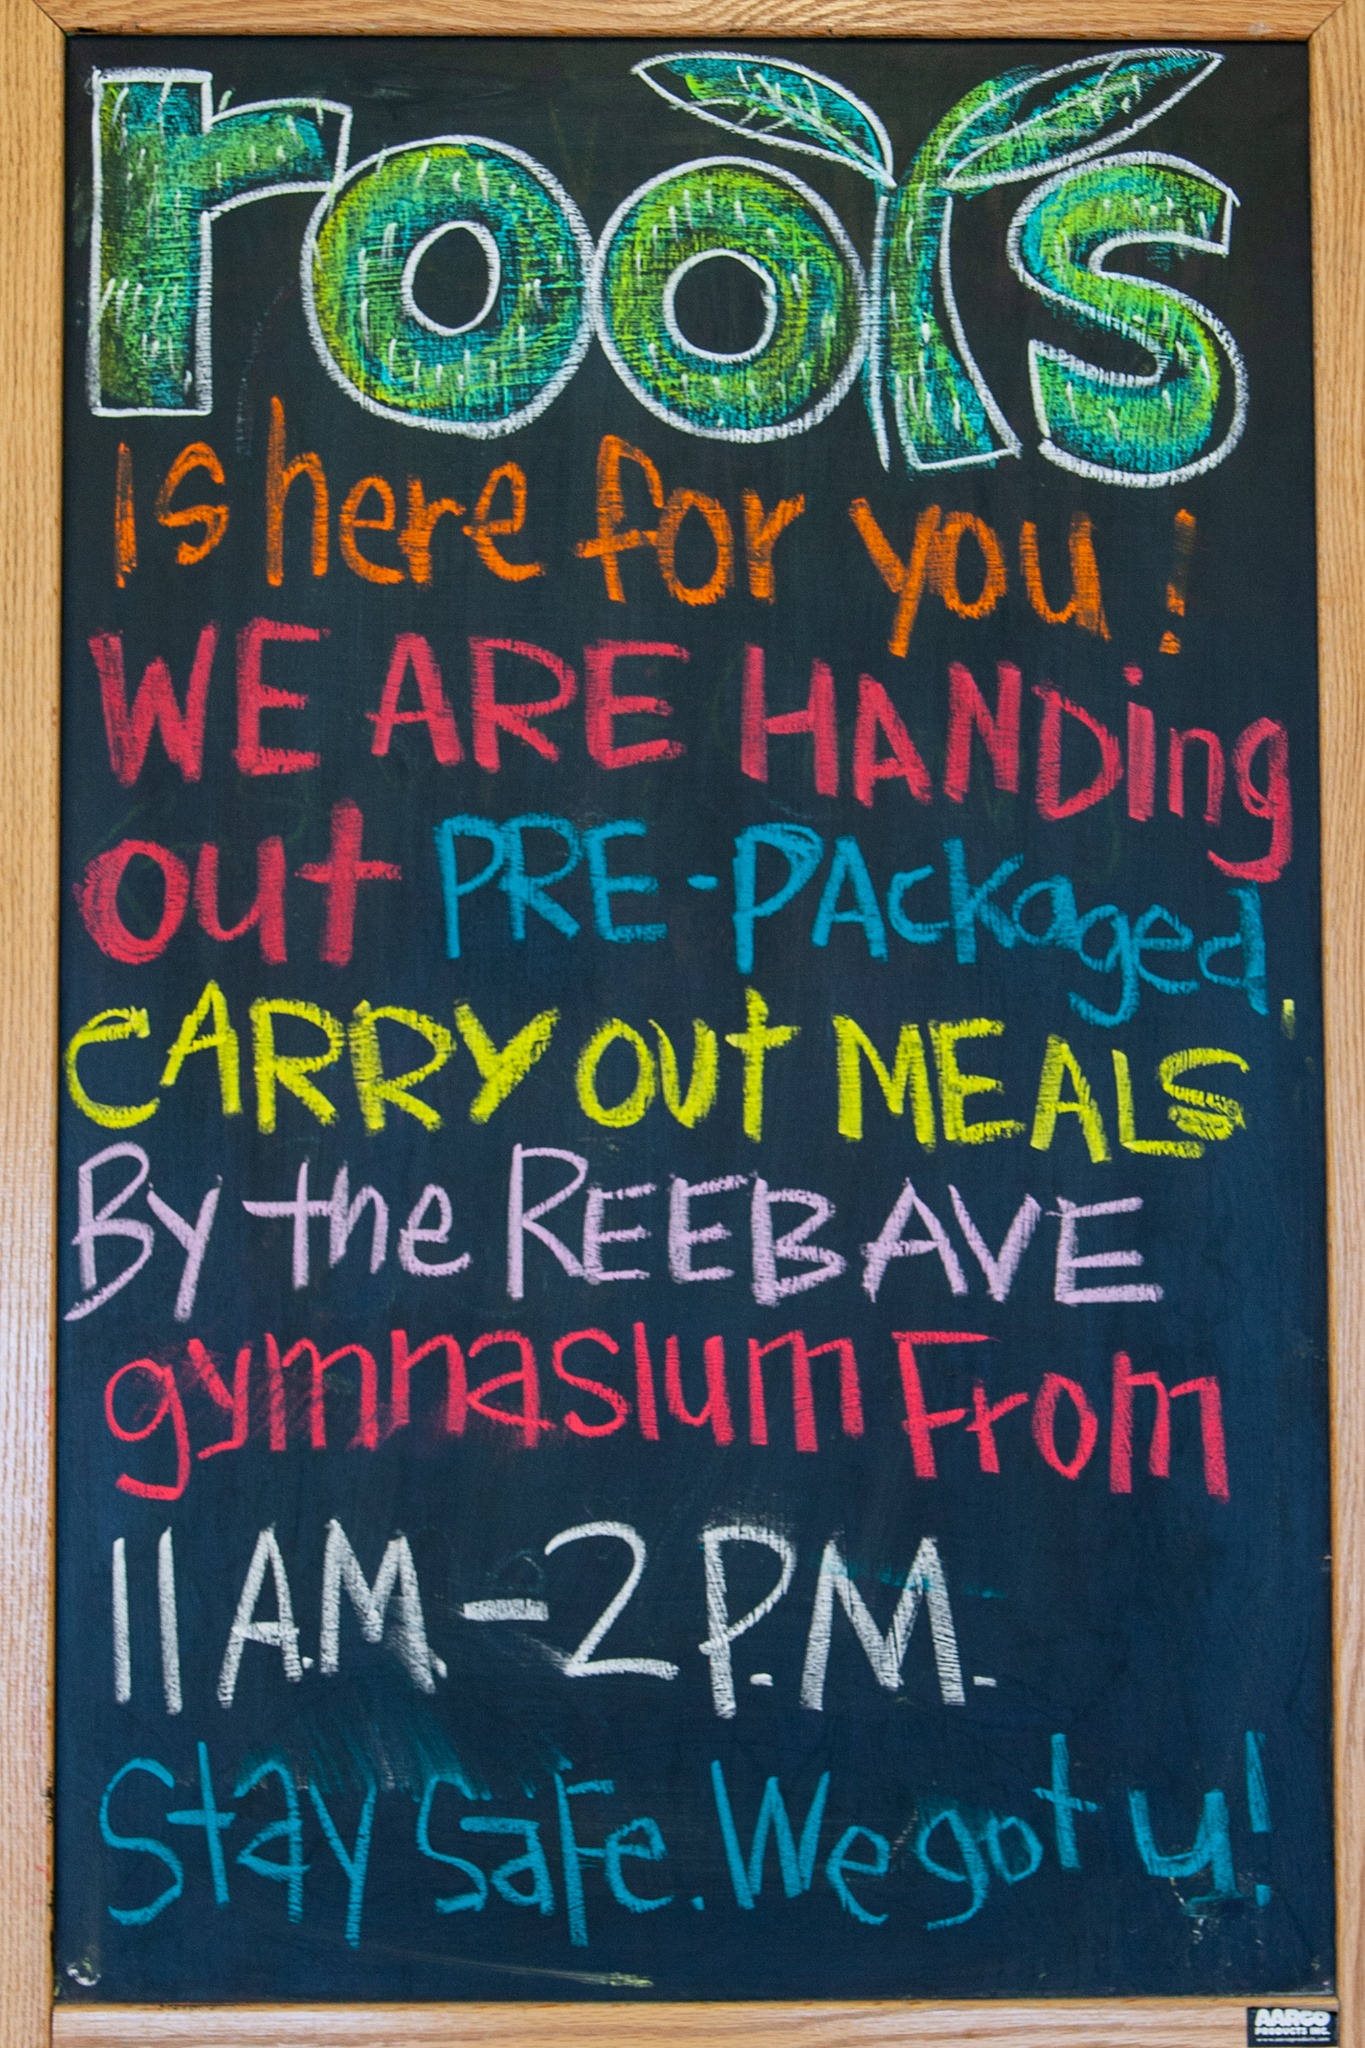 roots
is here for you!
WE ARE HANDing
out PRE-PAckaged
CARRY OUt MEALS
By the REEB AVE
gymnasium From
11 A.M. - 2 P.M.
Stay Safe. We got u!
AARCO
PRODUCTS INC.